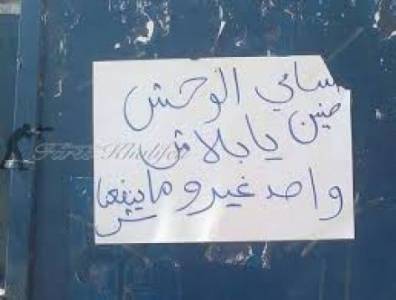 سامي الوحش
حنين يا بلاش
واحد غيرو ما ينفعاش